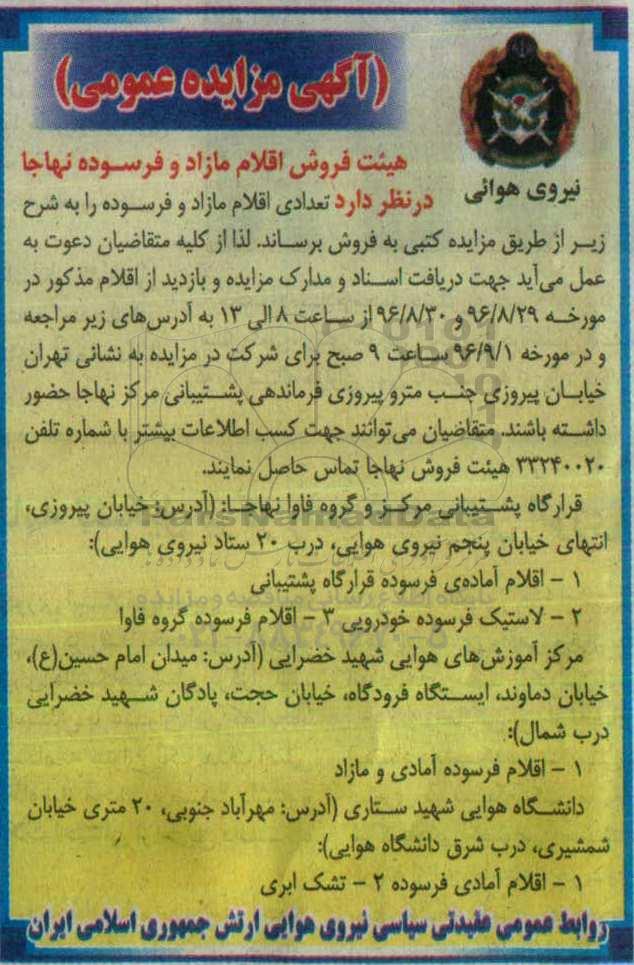 (آگهی مزایده عمومی)
نیروی هوائی
هیئت فروش اقلام مازاد و فرسوده نهاجا
درنظر دارد تعدادی اقلام مازاد و فرسوده را به شرح
زیر از طریق مزایده کتبی به فروش برساند. لذا از کلیه متقاضیان دعوت به
عمل می‌آید جهت دریافت اسناد و مدارک مزایده و بازدید از اقلام مذکور در
مورخه ۹۶/۸/۲۹ و ۹۶/۸/۳۰ از ساعت ۸ الی ۱۳ به آدرس‌های زیر مراجعه
و در مورخه ۹۶/۹/۱ ساعت ۹ صبح برای شرکت در مزایده به نشانی تهران
خیابان پیروزی جنب مترو پیروزی فرماندهی پشتیبانی مرکز نهاجا حضور
داشته باشند. متقاضیان می‌توانند جهت کسب اطلاعات بیشتر با شماره تلفن
۳۳۲۴۰۰۲۰ هیئت فروش نهاجا تماس حاصل نمایند.
قرارگاه پشتیبانی مرکز و گروه فاوا نهاجا: (آدرس: خیابان پیروزی،
انتهای خیابان پنجم نیروی هوایی، درب ۲۰ ستاد نیروی هوایی):
۱ - اقلام آماده‌ی فرسوده قرارگاه پشتیبانی
۲ - لاستیک فرسوده خودرویی ۳ - اقلام فرسوده گروه فاوا
مرکز آموزش‌های هوایی شهید خضرایی (آدرس: میدان امام حسین(ع)،
خیابان دماوند، ایستگاه فرودگاه، خیابان حجت، پادگان شهید خضرایی
درب شمال):
۱ - اقلام فرسوده آمادی و مازاد
دانشگاه هوایی شهید ستاری (آدرس: مهرآباد جنوبی، ۲۰ متری خیابان
شمشیری، درب شرق دانشگاه هوایی):
۱ - اقلام آمادی فرسوده ۲ - تشک ابری
روابط عمومی عقیدتی سیاسی نیروی هوایی ارتش جمهوری اسلامی ایران
ParsNamadData